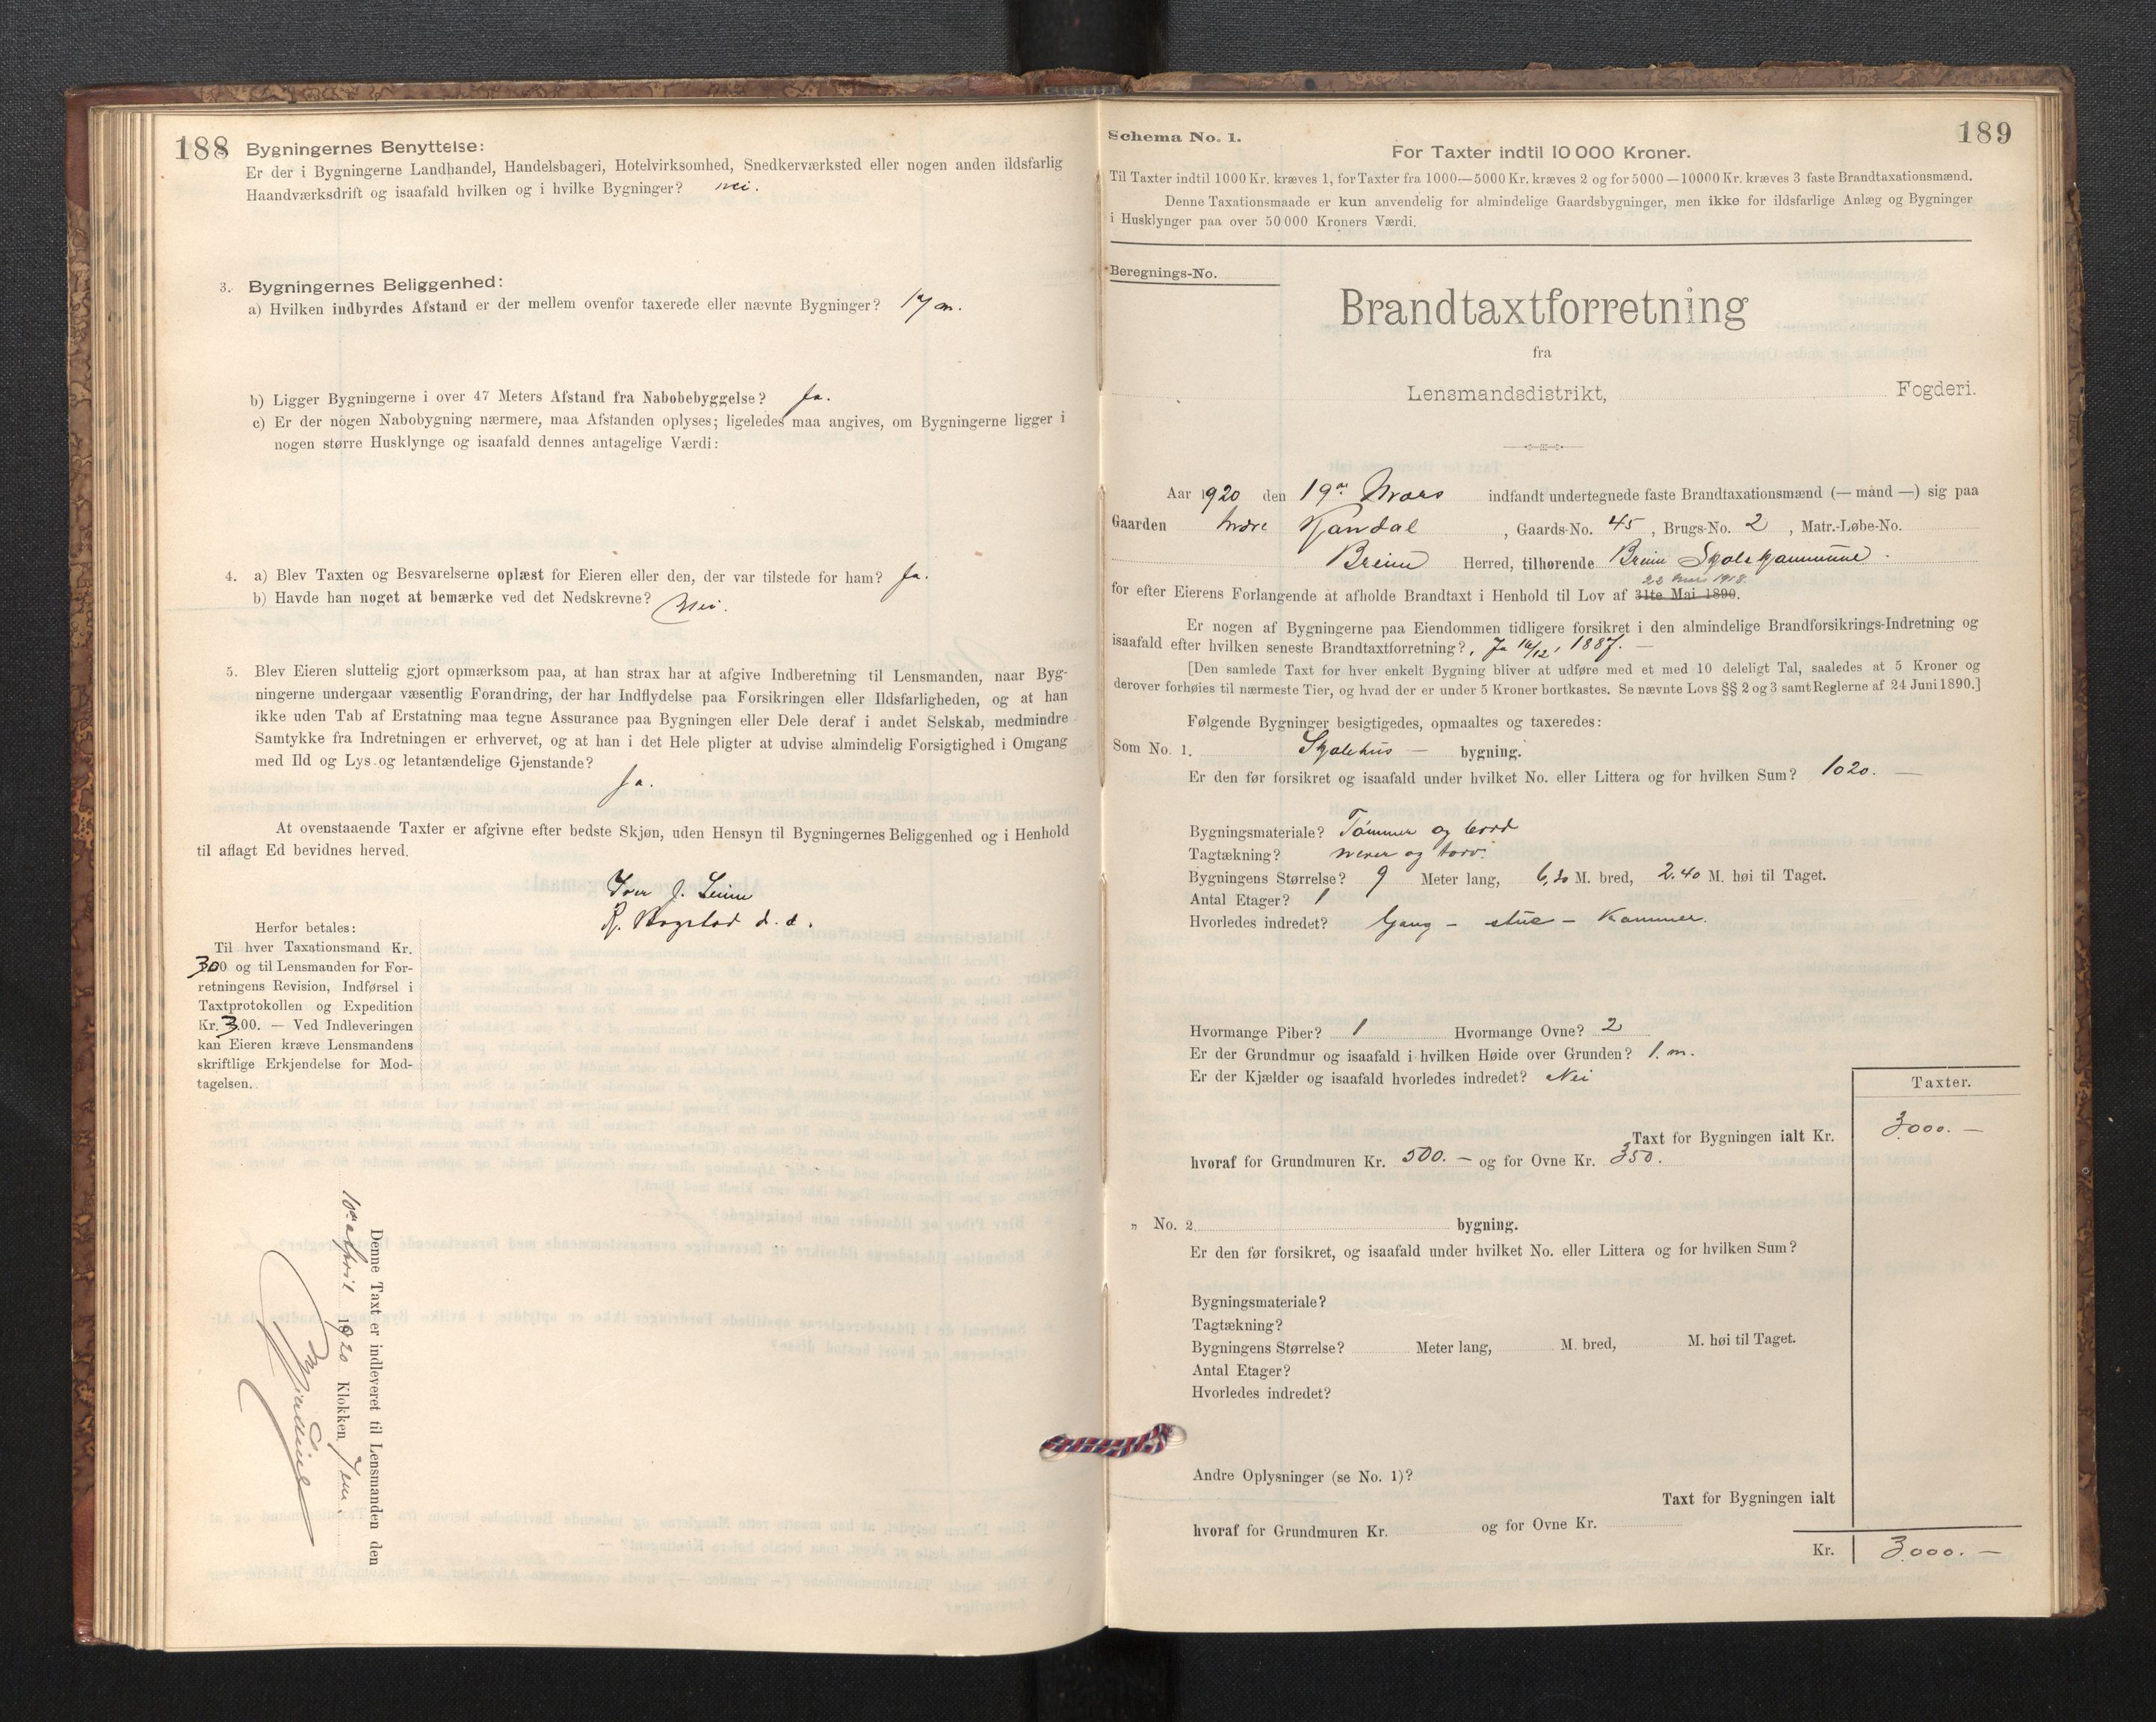 188
Bygningernes Benyttelse:
Er der i Bygningerne Landhandel, Handelsbageri, Hotelvirksomhed, Snedkerværksted eller nogen anden ildsfarlig
Haandværksdrift og isaafald hvilken og i hvilke Bygninger? nei.
3. Bygningernes Beliggenhed:
a) Hvilken indbyrdes Afstand er der mellem ovenfor taxerede eller nævnte Bygninger? m.
b) Ligger Bygningerne i over 47 Meters Afstand fra Nabobebyggelse? Ja.
c) Er der nogen Nabobygning nærmere, maa Afstanden oplyses; ligeledes maa angives, om Bygningerne ligger i
nogen større Husklynge og isaafald dennes antagelige Værdi:
4. a) Blev Taxten og Besvarelserne oplæst for Eieren eller den, der var tilstede for ham? Ja.
b) Havde han noget at bemærke ved det Nedskrevne? Nei.
5. Blev Eieren sluttelig gjort opmærksom paa, at han strax har at afgive Indberetning til Lensmanden, naar Byg-
ningerne undergaar væsentlig Forandring, der har Indflydelse paa Forsikringen eller Ildsfarligheden, og at han
ikke uden Tab af Erstatning maa tegne Assurance paa Bygningen eller Dele deraf i andet Selskab, medmindre
Samtykke fra Indretningen er erhvervet, og at han i det Hele pligter at udvise almindelig Forsigtighed i Omgang
med Ild og Lys og letantændelige Gjenstande?
Ja.
At ovenstaaende Taxter er afgivne efter bedste Skjøn, uden Hensyn til Bygningernes Beliggenhed og i Henhold
til aflagt Ed bevidnes herved.
Iver J. Seime
R. d. e.
Herfor betales:
Til hver Taxationsmand Kr.
300 og til Lensmanden for For-
retningens Revision, Indførsel i
Taxtprotokollen og Expedition
Kr. 3.00. — Ved Indleveringen
kan Eieren kræve Lensmandens
skriftlige Erkjendelse for Mod-
tagelsen.
Denne Taxt er indleveret til Lensmanden den
10de april 1920 Klokken 7 em.
Schema No. 1.
189
For Taxter indtil 10 000 Kroner.
Til Taxter indtil 1000 Kr. kræves 1, for Taxter fra 1000—5000 Kr. kræves 2 og for 5000—10000 Kr. kræves 3 faste Brandtaxationsmænd.
Denne Taxationsmaade er kun anvendelig for almindelige Gaardsbygninger, men ikke for ildsfarlige Anlæg og Bygninger
i Husklynger paa over 50 000 Kroners Værdi.
Beregnings-No.
Brandtaxtforretning
fra
Lensmandsdistrikt, Fogderi.
Aar 1920 den 19de Mars indfandt undertegnede faste Brandtaxationsmænd (— mand —) sig paa
Gaarden Indre Kandal, Gaards-No. 45, Brugs-No. 2, Matr.-Løbe-No.
Breim Herred, tilhørende Breim Skolekommune.
22 Mars 1918.
for efter Eierens Forlangende at afholde Brandtaxt i Henhold til Lov af 31te Mai 1890.
Er nogen af Bygningerne paa Eiendommen tidligere forsikret i den almindelige Brandforsikrings-Indretning og
isaafald efter hvilken seneste Brandtaxtforretning? Ja 16/12, 1887. —
[Den samlede Taxt for hver enkelt Bygning bliver at udføre med et med 10 deleligt Tal, saaledes at 5 Kroner og
derover forhøies til nærmeste Tier, og hvad der er under 5 Kroner bortkastes. Se nævnte Lovs §§ 2 og 3 samt Reglerne af 24 Juni 1890.]
Følgende Bygninger besigtigedes, opmaaltes og taxeredes:
Som No. 1. Skolehus — bygning.
Er den før forsikret og isaafald under hvilket No. eller Littera og for hvilken Sum? 1020. —
Bygningsmateriale? Tømmer og bord
Tagtækning? never og torv.
Bygningens Størrelse? 9 Meter lang, 6,20 M. bred, 2.40 M. høi til Taget.
Antal Etager? 1
Hvorledes indredet? Gang – stue – kammer.
Hvormange Piber? 1 Hvormange Ovne? 2
Er der Grundmur og isaafald i hvilken Høide over Grunden? 1. m.
Er der Kjælder og isaafald hvorledes indredet? Nei
Taxter.
Taxt for Bygningen ialt Kr. 3000. —
hvoraf for Grundmuren Kr. 500. — og for Ovne Kr. 350.
„ No. 2 bygning.
Er den før forsikret, og isaafald under hvilket No. eller Littera og for hvilken Sum?
Bygningsmateriale?
Tagtækning?
Bygningens Størrelse? Meter lang, M. bred, M. høi til Taget.
Antal Etager?
Hvorledes indredet?
Andre Oplysninger (se No. 1)?
Taxt for Bygningen ialt
hvoraf for Grundmuren Kr. og for Ovne Kr.
Kr. 3000. —